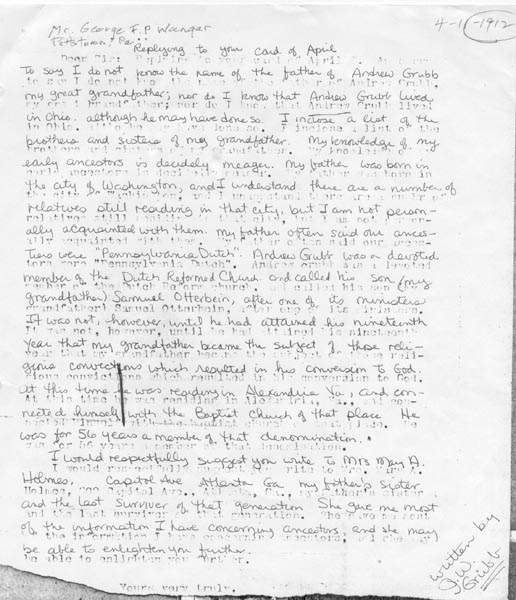 4-11-1912
Mr. George F.P Wanger
Pottstown, Pa.
Replying to your card of April
To say I do not know the name of the father of Andrew Grubb
my great grandfather, nor do I know that Andrew Grubb lived
in Ohio. although he may have done so. I inclose a list of the
brothers and sisters of my grandfather. My knowledge of my
early ancestors is decidely meager. My father was born in
the city of Washington, and I understand there are a number of
relatives still residing in that city, but I am not person-
ally acquainted with them. My father often said our ances-
tors were "Pennsylvania Dutch". Andrew Grubb was a devoted
member of the Dutch Reformed Church and called his son (my
grandfather) Samuel Otterbein, after one of its ministers
It was not, however, until he had attained his nineteenth
year that my grandfather became the subject of those reli-
gious convections which resulted in his conversion to God.
At this time he was residing in Alexandria Va, and con-
nected himself with the Baptist Church of that place. He
was for 56 years a member of that denomination.
I would respectfully suggest you write to Mrs Mary A.
Holmes, Capitol Ave Atlanta Ga my father's sister
and the last surviver of that generation. She gave me most
of the information I have concerning ancestors, and she may
be able to enlighten you further.
Yours very truly.
written by
J.W.
Grubb